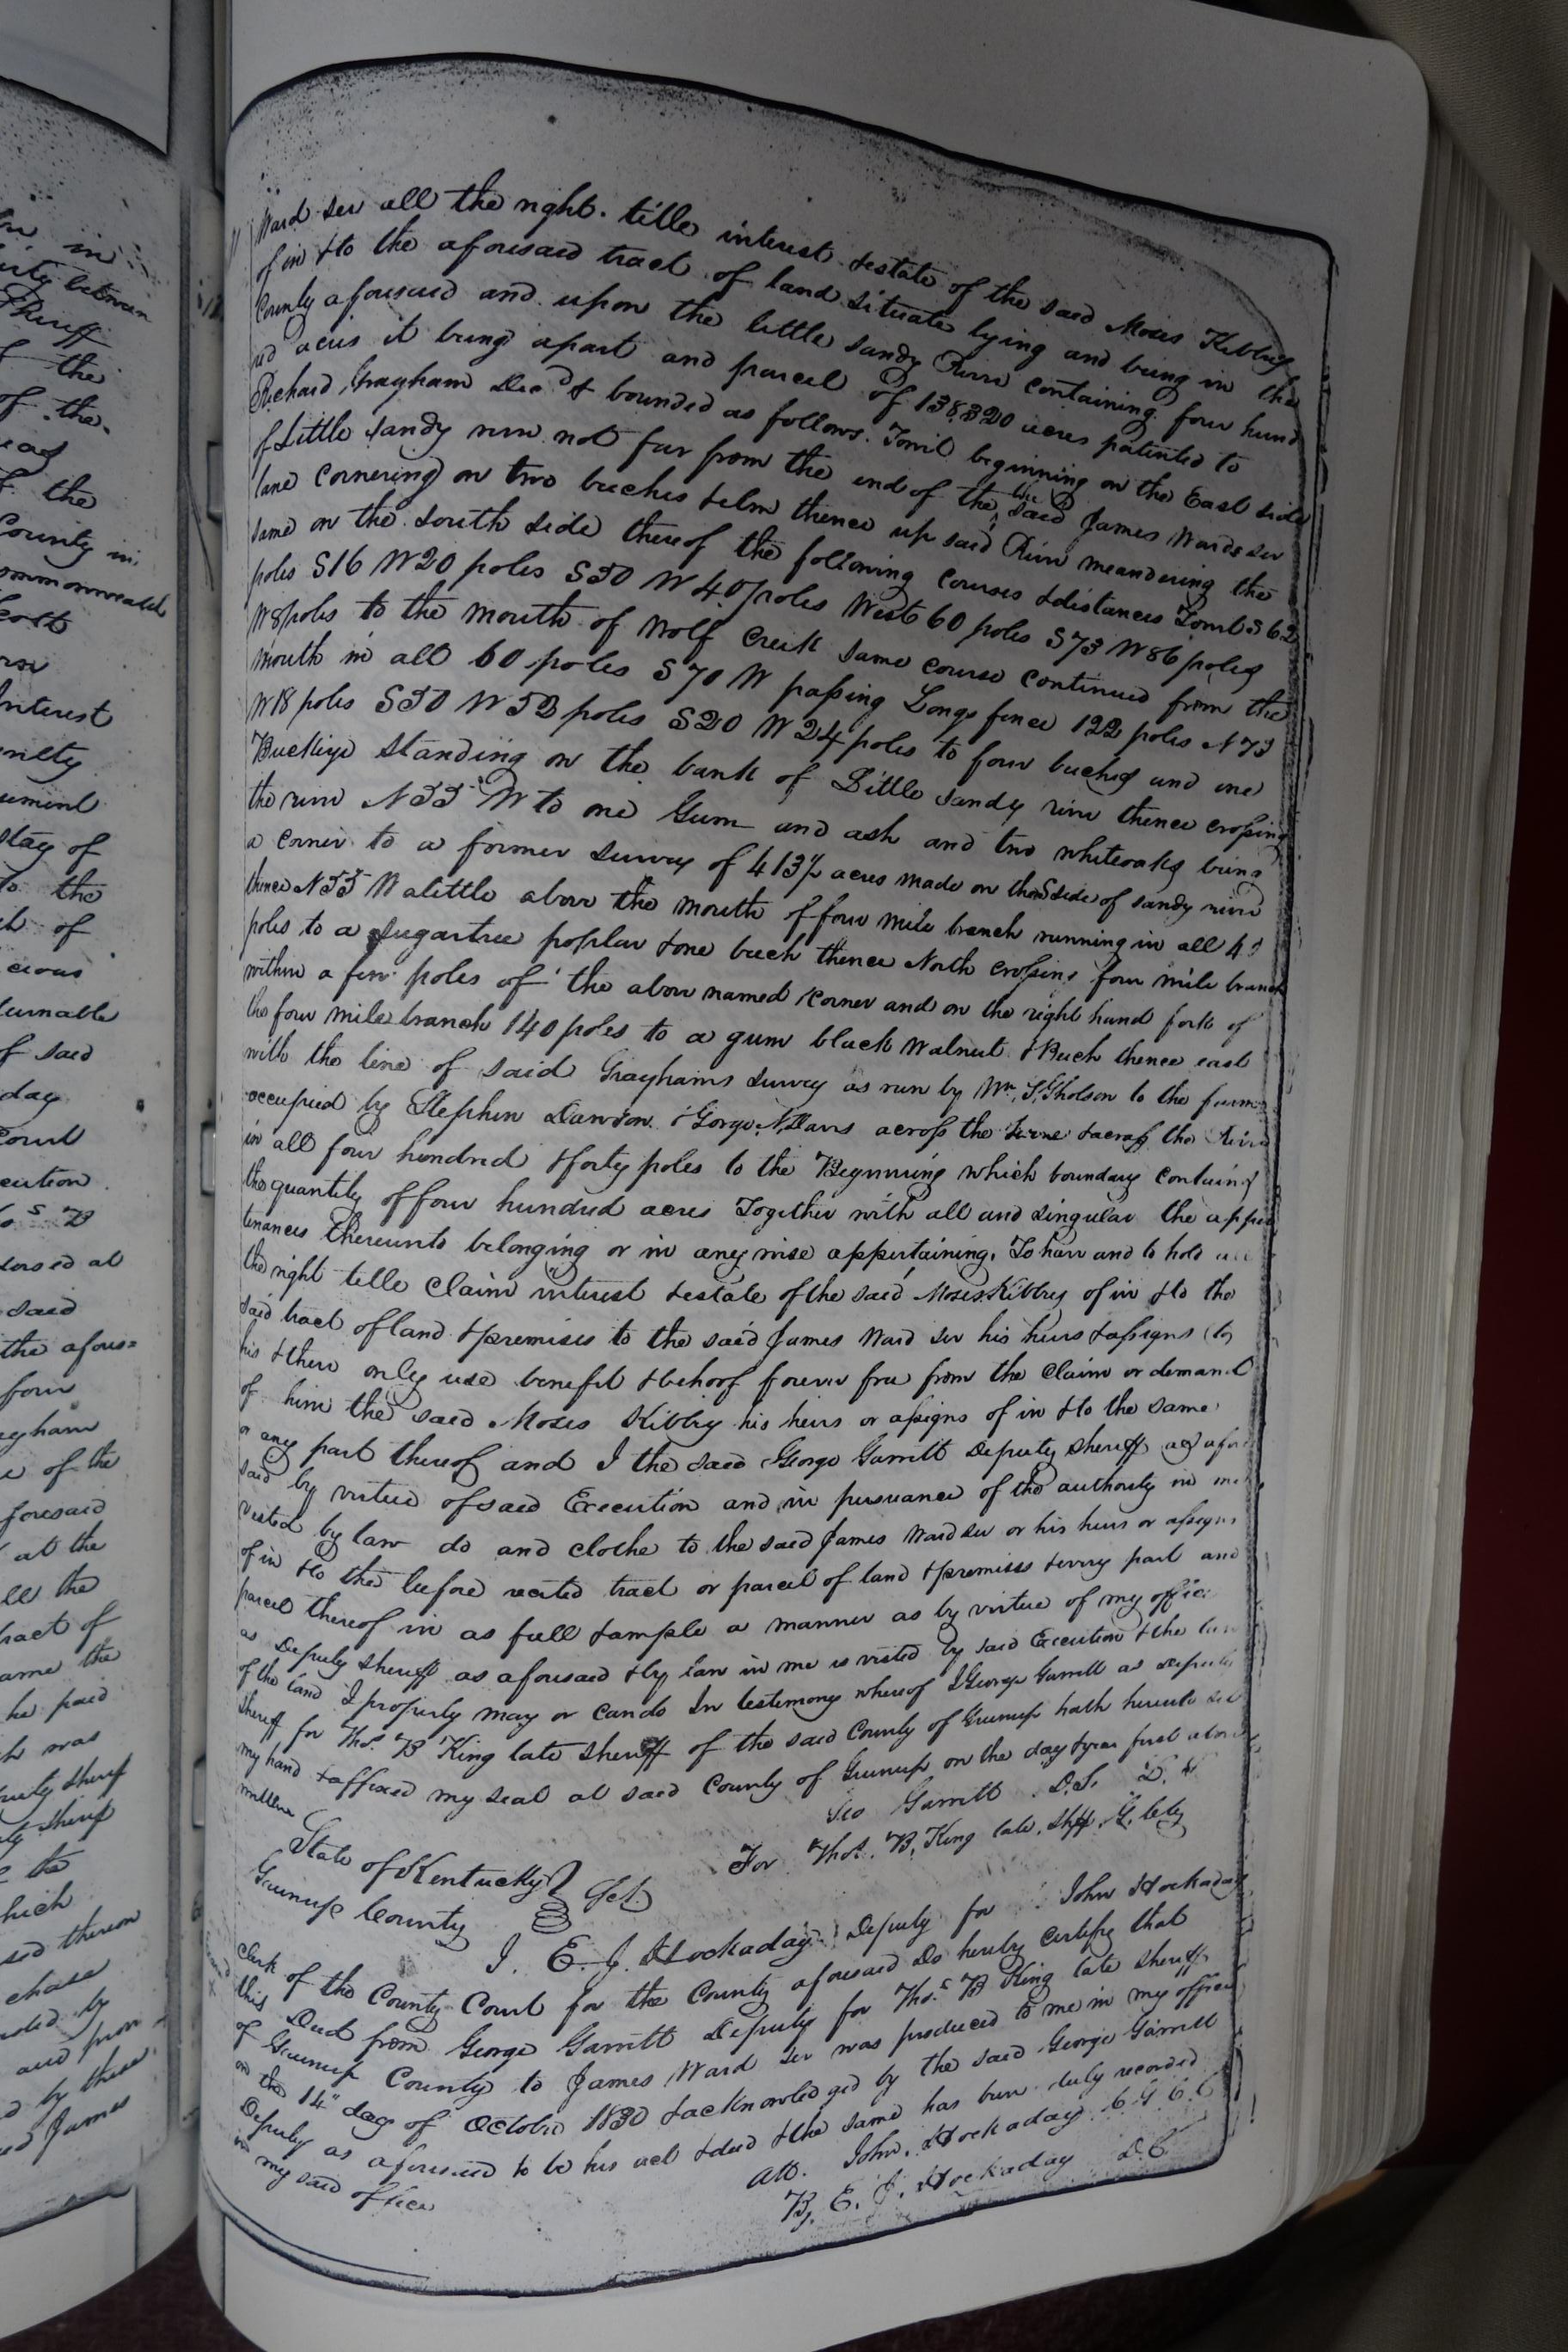 in
between
Sheriff
the
of the
the
County in
ommonwealth
Interest
stay of
to the
of
cious
turnable
of said
day
Court
cution
dorsed at
said
the afores=
four
of the
foresaid
at the
all the
tract of
ame the
he paid
was
the
which
sed thereon
chase
by
James
Ward sen all the right. title interest & estate of the said Moses Kibbey
of in & to the aforesaid tract of land situate lying and being in the
County aforesaid and upon the little sandy River containing four hund
red acres it being apart and parcel of 138,320 acres patented to
Richard Grayham Dec'd & bounded as follows. Towit beginning on the East side
of Little Sandy river not far from the end of the the said James Wards sen
lane cornering on two buches & elm thence up said River meandering the
same on the south side thereof the following courses & distances Towit S 62
poles S16 W20 poles S50 W 40 poles West 60 poles S73 W86 poles
W8 poles to the mouth of Wolf Creek same course continued from the
mouth in all 60 poles S70 W passing Longs fence 122 poles N 73
W18 poles S50 W 52 poles S20 W 24 poles to four buches and one
Buckeye standing on the bank of Little sandy river thence crossing
the river N55 W to one Gum and ash and two whiteoaks being
a corner to a former survey of 413½ acres made on the S side of sandy river
thence N55 W alittle above the mouth of four mile branch running in all
poles to a sugartree poplar & one buch thence North crossing four mile branch
within a few poles of the above named corner and on the right hand fork of
the four mile branch 140 poles to a gum black Walnut & Buch thence east
with the line of said Grayhams survey as run by Wm. S. Gholson to the farm
occupied by Stephen Dawson & George N. Davis across the same & across the River
in all four hundred & forty poles to the Beginning which boundary contains
the quantity of four hundred acres Together with all and singular the appur
tenances thereunto belonging or in any wise appertaining. To have and to hold all
the right title claim interest & estate of the said Moses Kibbey of in & to the
said tract of land & premises to the said James Ward sen his heirs & assigns to
his & their only use benefit & behoof forever free from the claim or demand
of him the said Moses Kibbey his heirs or assigns of in & to the same
or any part thereof and I the said George Garritt Deputy sheriff as afore
said by virtue of said Execution and in pursuance of the authority in me
vested by law do and clothe to the said James Ward sen or his heirs or assigns
of in & to the before recited tract or parcel of land & premises & every part and
parcel thereof in as full & ample a manner as by virtue of my office
as Deputy sheriff as aforesaid & by law in me is vested by said Execution & the law
of the land I properly may or can do In testimony whereof I George Garritt as deputy
sheriff for Thos. B King late sheriff of the said County of Greenup hath hereunto set
my hand & affixed my seal at said County of Greenup on the day & year first above
written
Geo Garritt D.S. L.S
For Thos. B. King late. shff. G. Cty
State of Kentucky
Greenup County Sct.
I. E. J. Hockaday Deputy for John Hockaday
Clerk of the County Court for the County aforesaid Do hereby certify that
this Deed from George Garritt Deputy for Thos. B King late sheriff
of Greenup County to James Ward sen was produced to me in my office
on the 14" day of October 1830 & acknowledged by the said George Garritt
Deputy as aforesaid to be his act & deed & the same has been duly recorded
in my said office
Att. John. Hockaday C G C C
By. E. J. Hockaday D.C